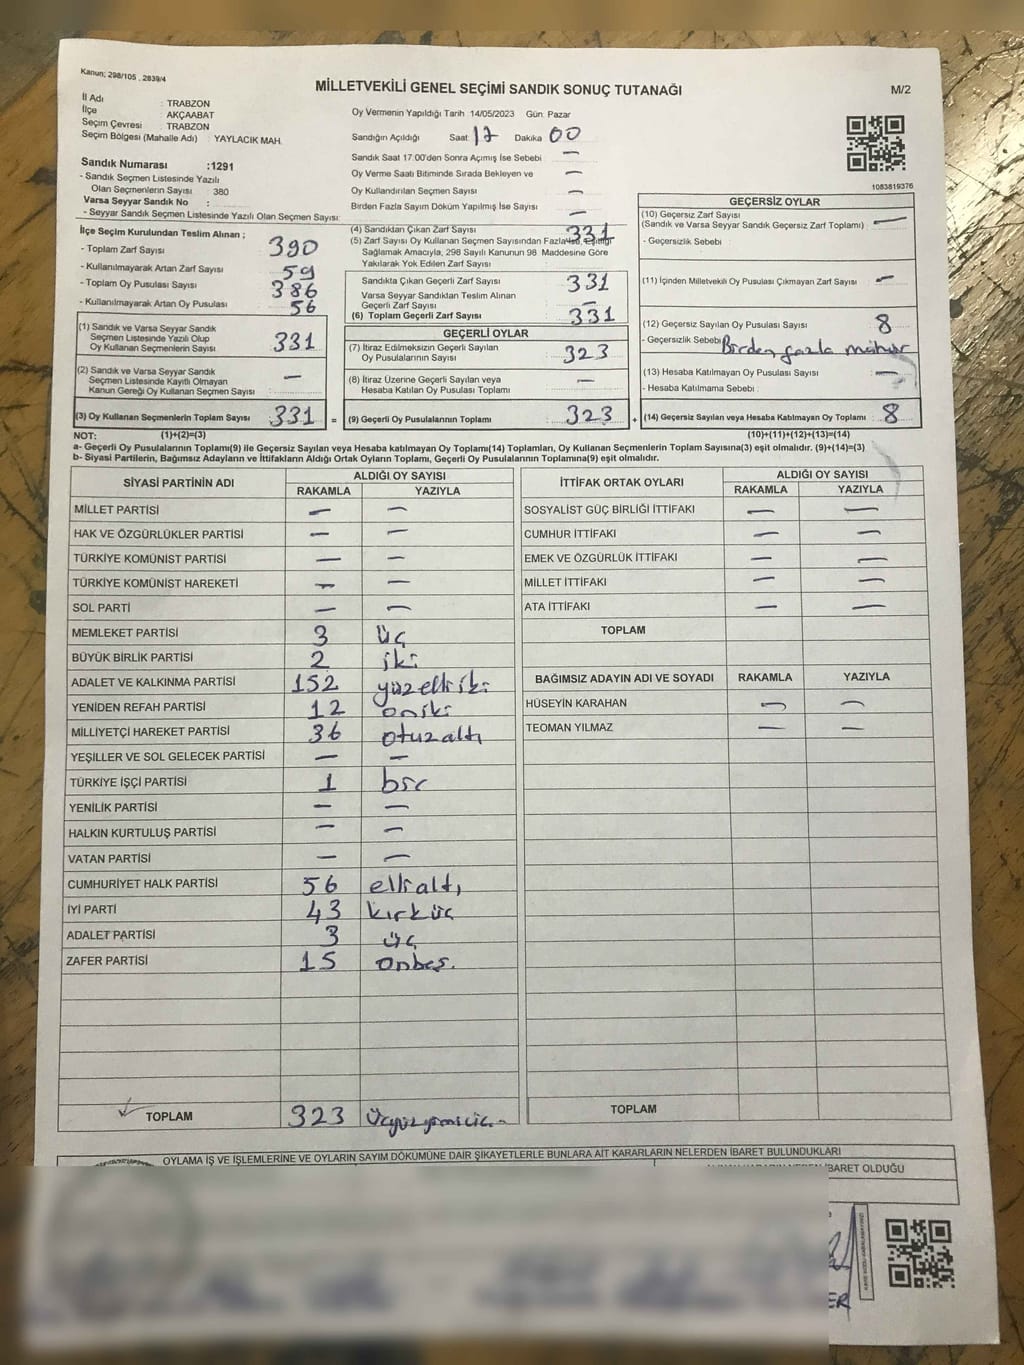 Kanun; 298/105 , 2839/4
MİLLETVEKİLİ GENEL SEÇİMİ SANDIK SONUÇ TUTANAĞI
M/2
İl Adı : TRABZON
İlçe : AKÇAABAT
Seçim Çevresi : TRABZON
Seçim Bölgesi (Mahalle Adı) : YAYLACIK MAH.
Sandık Numarası :1291
- Sandık Seçmen Listesinde Yazılı
Olan Seçmenlerin Sayısı : 380
Varsa Seyyar Sandık No :
- Seyyar Sandık Seçmen Listesinde Yazılı Olan Seçmen Sayısı:
Oy Vermenin Yapıldığı Tarih 14/05/2023 Gün. Pazar
Sandığın Açıldığı Saat 17 Dakika 00
Sandık Saat 17:00'den Sonra Açımış İse Sebebi : —
Oy Verme Saati Bitiminde Sırada Bekleyen ve —
Oy Kullandırılan Seçmen Sayısı : —
Birden Fazla Sayım Döküm Yapılmış İse Sayısı : —
1083819376
İlçe Seçim Kurulundan Teslim Alınan ;
- Toplam Zarf Sayısı : 390
- Kullanılmayarak Artan Zarf Sayısı : 59
- Toplam Oy Pusulası Sayısı : 386
- Kullanılmayarak Artan Oy Pusulası : 56
(1) Sandık ve Varsa Seyyar Sandık
Seçmen Listesinde Yazılı Olup
Oy Kullanan Seçmenlerin Sayısı : 331
(2) Sandık ve Varsa Seyyar Sandık
Seçmen Listesinde Kayıtlı Olmayan
Kanun Gereği Oy Kullanan Seçmen Sayısı : —
(3) Oy Kullanan Seçmenlerin Toplam Sayısı : 331 =
(4) Sandıktan Çıkan Zarf Sayısı : 331
(5) Zarf Sayısı Oy Kullanan Seçmen Sayısından Fazla ise, Eşitliği
Sağlamak Amacıyla, 298 Sayılı Kanunun 98 Maddesine Göre
Yakılarak Yok Edilen Zarf Sayısı :
Sandıkta Çıkan Geçerli Zarf Sayısı : 331
Varsa Seyyar Sandıktan Teslim Alınan
Geçerli Zarf Sayısı : —
(6) Toplam Geçerli Zarf Sayısı : 331
GEÇERLİ OYLAR
(7) İtiraz Edilmeksizin Geçerli Sayılan
Oy Pusulalarının Sayısı : 323
(8) İtiraz Üzerine Geçerli Sayılan veya
Hesaba Katılan Oy Pusulası Toplamı : —
(9) Geçerli Oy Pusulalarının Toplamı : 323 +
GEÇERSİZ OYLAR
(10) Geçersiz Zarf Sayısı
(Sandık ve Varsa Seyyar Sandık Geçersiz Zarf Toplamı) : —
- Geçersizlik Sebebi :
(11) İçinden Milletvekili Oy Pusulası Çıkmayan Zarf Sayısı : —
(12) Geçersiz Sayılan Oy Pusulası Sayısı : 8
- Geçersizlik Sebebi : Birden fazla mühür
(13) Hesaba Katılmayan Oy Pusulası Sayısı : —
- Hesaba Katılmama Sebebi :
(14) Geçersiz Sayılan veya Hesaba Katılmayan Oy Toplamı : 8
NOT: (1)+(2)=(3)
(10)+(11)+(12)+(13)=(14)
a- Geçerli Oy Pusulalarının Toplamı(9) ile Geçersiz Sayılan veya Hesaba katılmayan Oy Toplamı(14) Toplamları, Oy Kullanan Seçmenlerin Toplam Sayısına(3) eşit olmalıdır. (9)+(14)=(3)
b- Siyasi Partilerin, Bağımsız Adayların ve İttifakların Aldığı Ortak Oyların Toplamı, Geçerli Oy Pusulalarının Toplamına(9) eşit olmalıdır.
SİYASİ PARTİNİN ADI ALDIĞI OY SAYISI
RAKAMLA YAZIYLA
MİLLET PARTİSİ — —
HAK VE ÖZGÜRLÜKLER PARTİSİ — —
TÜRKİYE KOMÜNİST PARTİSİ — —
TÜRKİYE KOMÜNİST HAREKETİ — —
SOL PARTİ — —
MEMLEKET PARTİSİ 3 üç
BÜYÜK BİRLİK PARTİSİ 2 iki
ADALET VE KALKINMA PARTİSİ 152 yüzelliiki
YENİDEN REFAH PARTİSİ 12 oniki
MİLLİYETÇİ HAREKET PARTİSİ 36 otuzaltı
YEŞİLLER VE SOL GELECEK PARTİSİ — —
TÜRKİYE İŞÇİ PARTİSİ 1 bir
YENİLİK PARTİSİ — —
HALKIN KURTULUŞ PARTİSİ — —
VATAN PARTİSİ — —
CUMHURİYET HALK PARTİSİ 56 ellialtı
İYİ PARTİ 43 kırküç
ADALET PARTİSİ 3 üç
ZAFER PARTİSİ 15 onbeş.
TOPLAM 323
İTTİFAK ORTAK OYLARI ALDIĞI OY SAYISI
RAKAMLA YAZIYLA
SOSYALİST GÜÇ BİRLİĞİ İTTİFAKI — —
CUMHUR İTTİFAKI — —
EMEK VE ÖZGÜRLÜK İTTİFAKI — —
MİLLET İTTİFAKI — —
ATA İTTİFAKI — —
TOPLAM
BAĞIMSIZ ADAYIN ADI VE SOYADI RAKAMLA YAZIYLA
HÜSEYİN KARAHAN — —
TEOMAN YILMAZ — —
TOPLAM
OYLAMA İŞ VE İŞLEMLERİNE VE OYLARIN SAYIM DÖKÜMÜNE DAİR ŞİKAYETLERLE BUNLARA AİT KARARLARIN NELERDEN İBARET BULUNDUKLARI
İBARET OLDUĞU